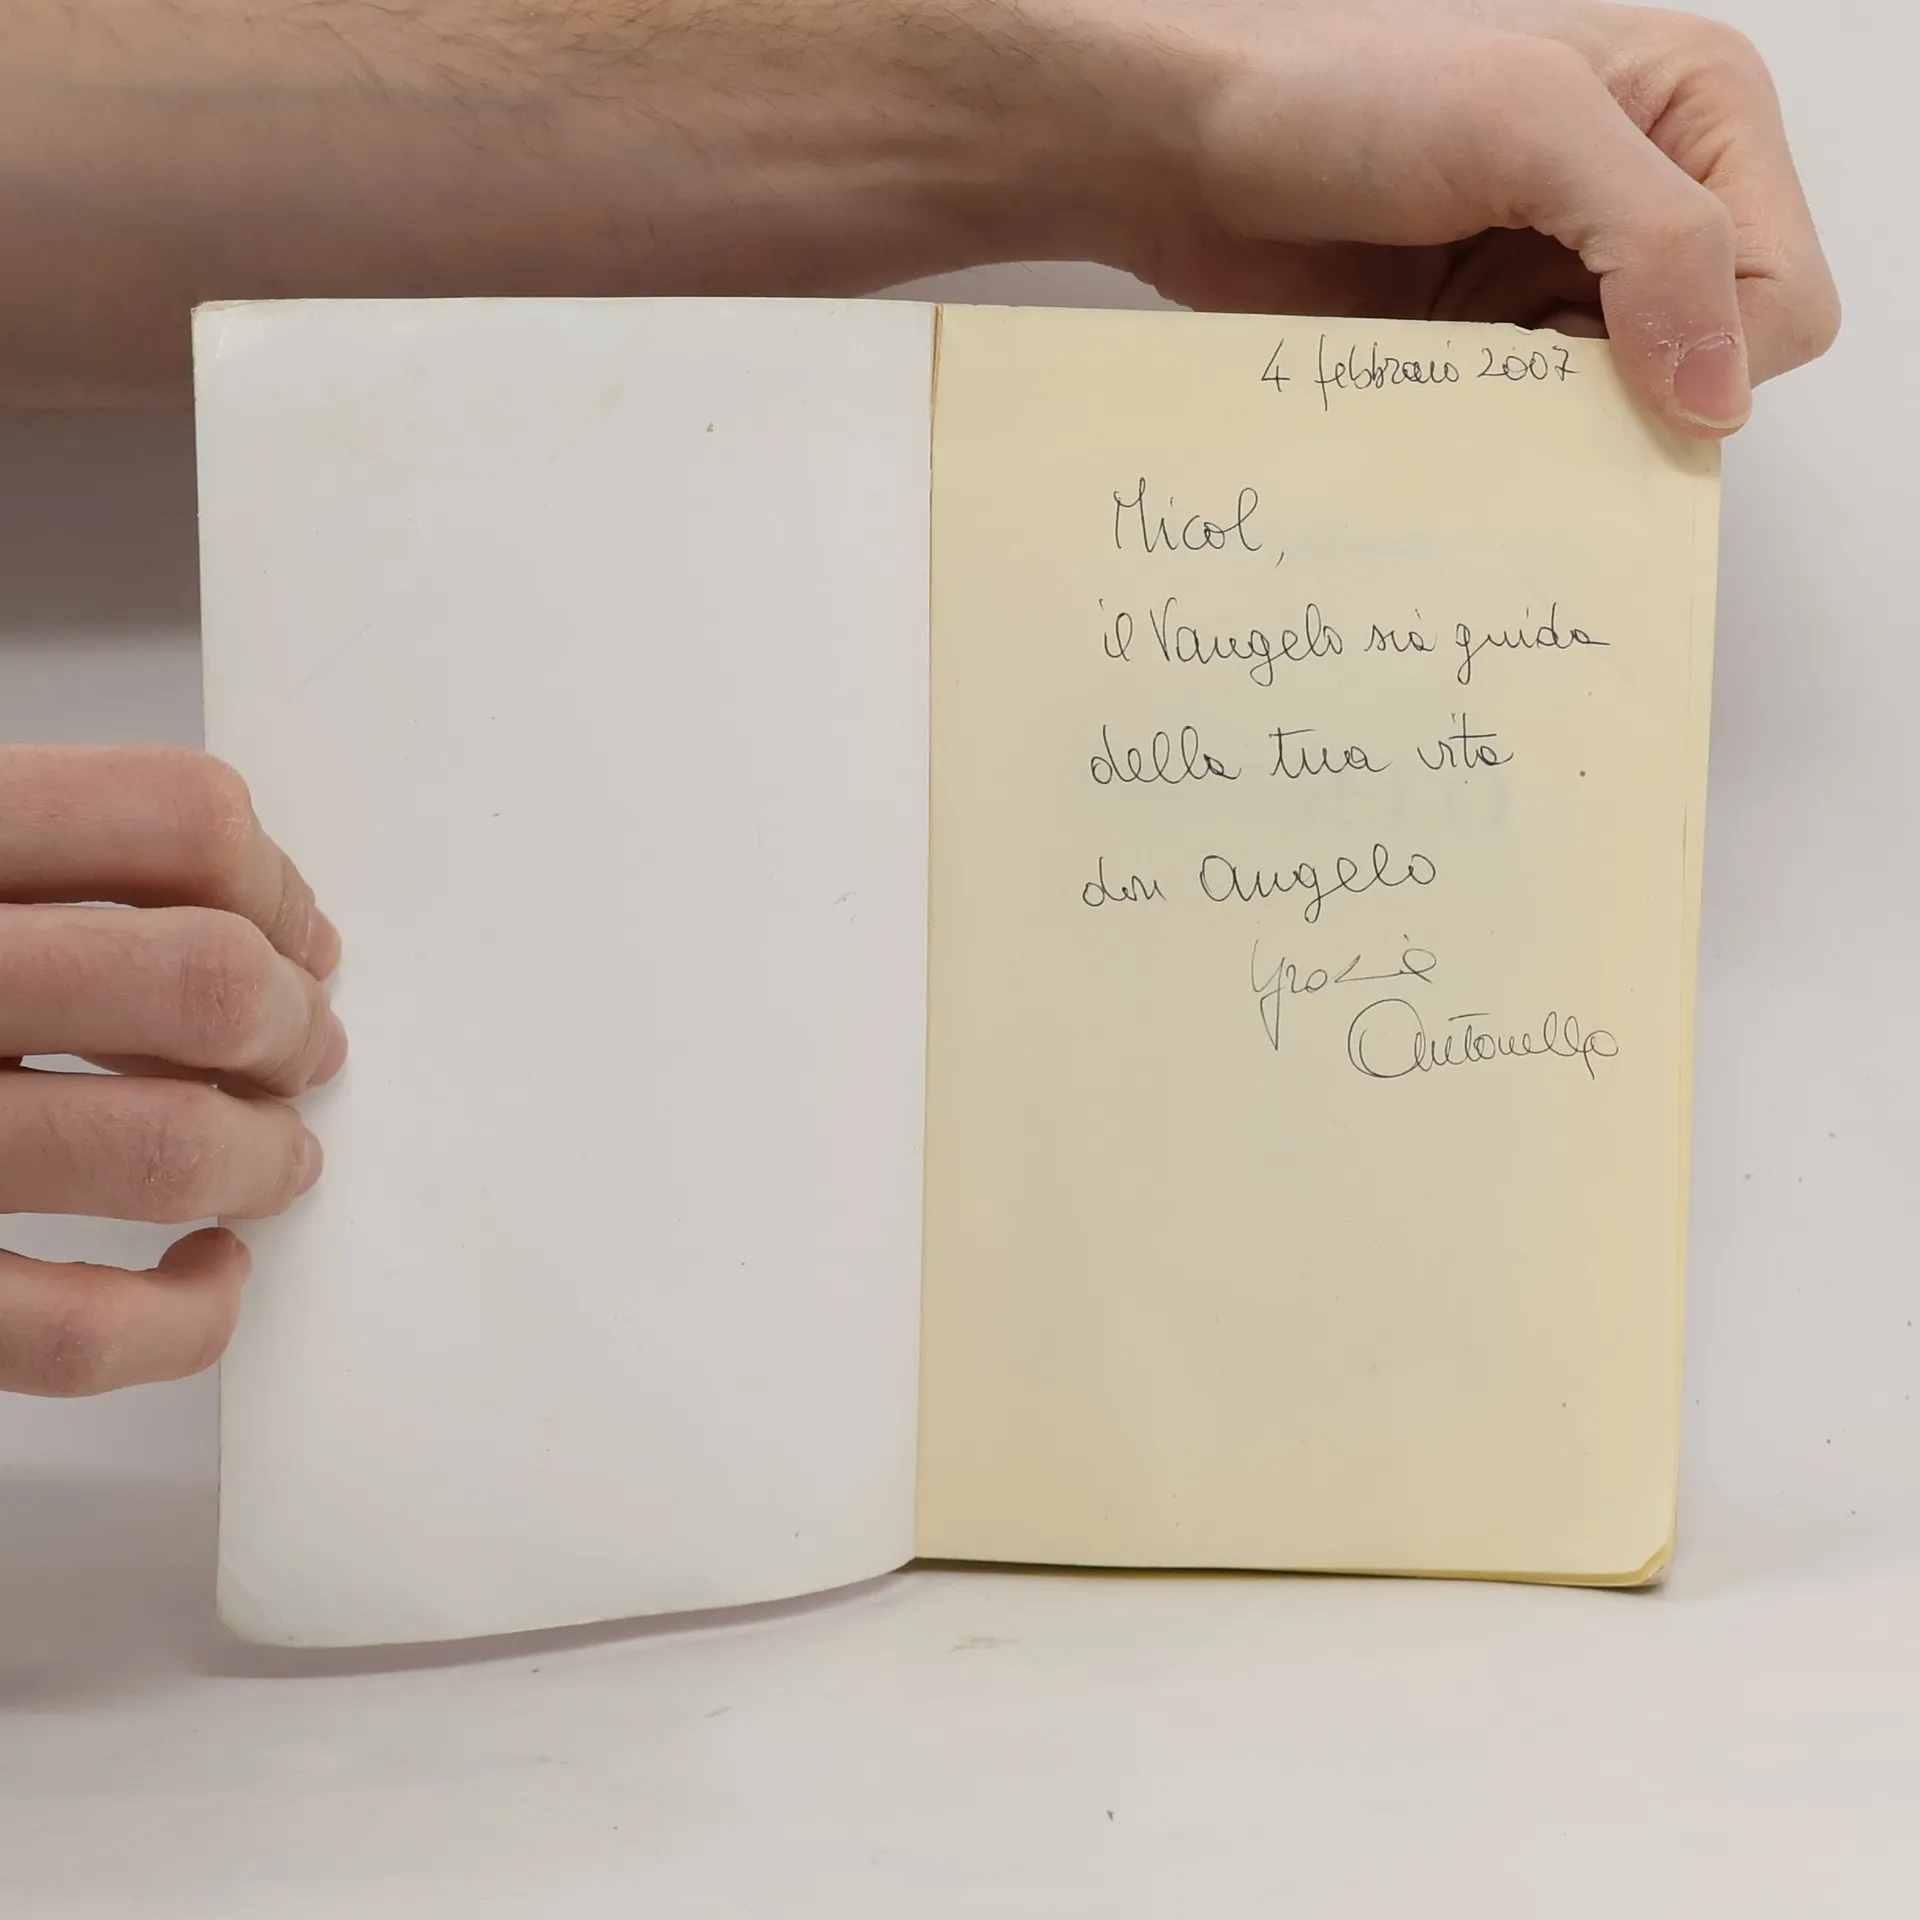 4 febbraio 2007
Micol,
il Vangelo sia guida
della tua vita
don Angelo
Grazie
Antonella